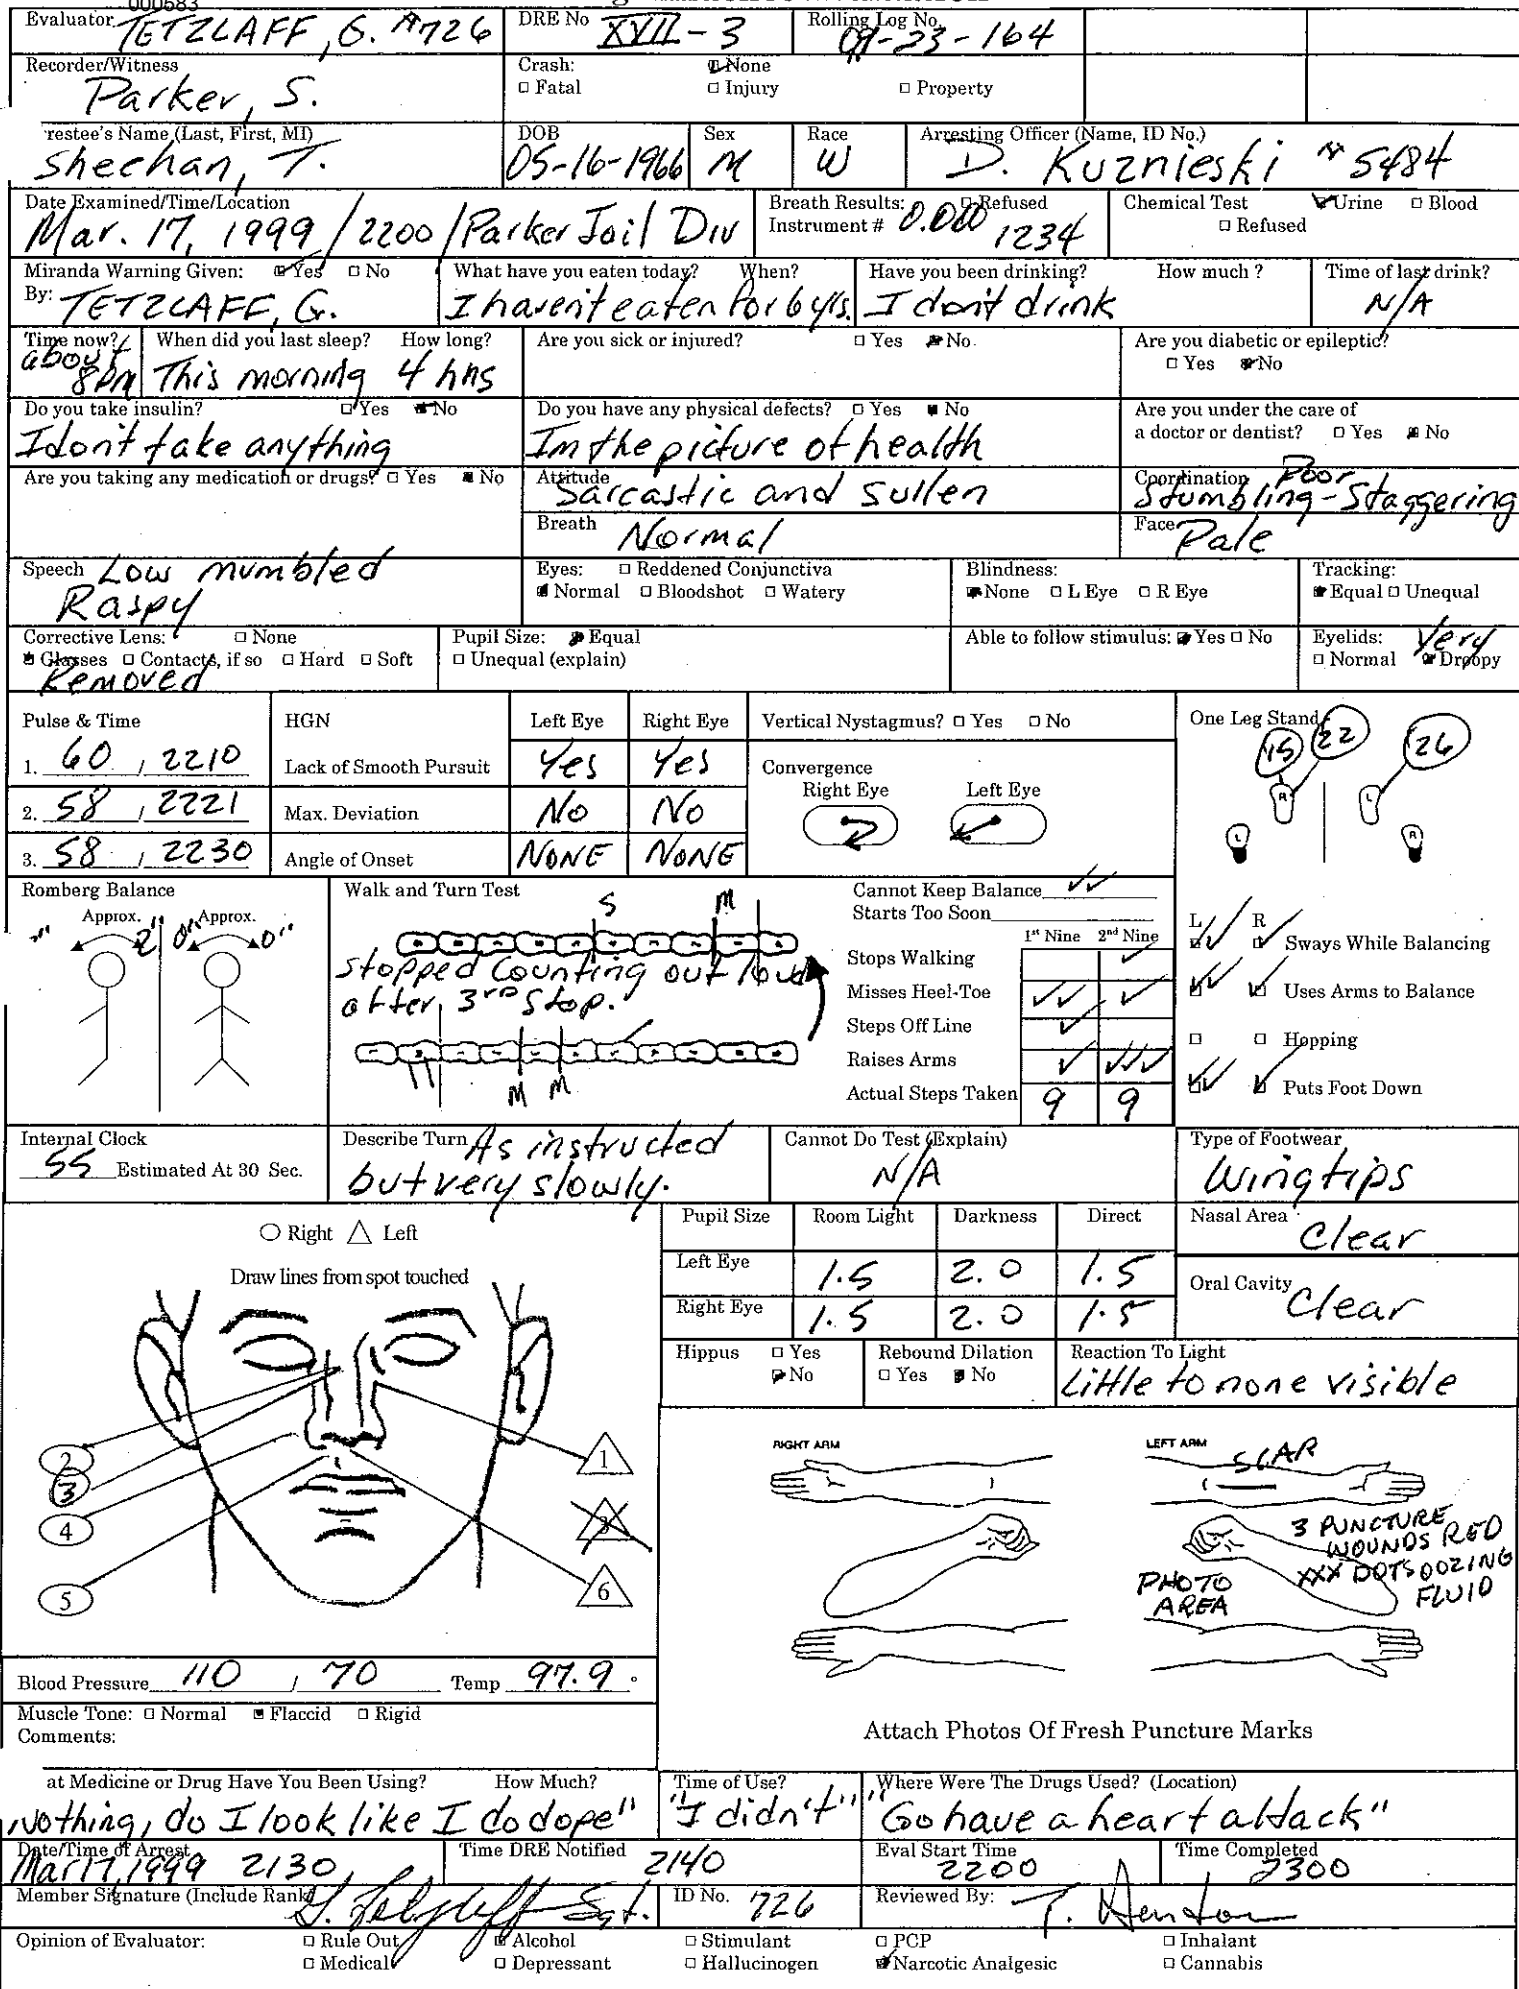 000583
Evaluator TETZLAFF, G. #726
DRE No XVII-3
Rolling Log No. 09-23-164
Recorder/Witness Parker, S.
Crash: None
Fatal Injury Property
restee's Name (Last, First, MI) Sheehan, T.
DOB 05-16-1966
Sex M
Race W
Arresting Officer (Name, ID No.) D. Kuznieski #5484
Date Examined/Time/Location
Mar. 17, 1999 / 2200 / Parker Jail Div
Breath Results: Refused
Instrument # 0.000 1234
Chemical Test Urine Blood
Refused
Miranda Warning Given: Yes No
By: TETZLAFF, G.
What have you eaten today? When?
I haven't eaten for 6 yrs.
Have you been drinking? How much ?
I don't drink
Time of last drink?
N/A
Time now?
about 8pm
When did you last sleep? How long?
This morning 4 hrs
Are you sick or injured? Yes No
Are you diabetic or epileptic?
Yes No
Do you take insulin? Yes No
I don't take anything
Do you have any physical defects? Yes No
Im the picture of health
Are you under the care of
a doctor or dentist? Yes No
Are you taking any medication or drugs? Yes No
Attitude Sarcastic and Sullen
Coordination Poor
Stumbling-Staggering
Breath Normal
Face Pale
Speech Low mumbled
Raspy
Eyes: Reddened Conjunctiva
Normal Bloodshot Watery
Blindness:
None L Eye R Eye
Tracking:
Equal Unequal
Corrective Lens: None
Glasses Contacts, if so Hard Soft
Removed
Pupil Size: Equal
Unequal (explain)
Able to follow stimulus: Yes No
Eyelids: Very
Normal Droopy
Pulse & Time
1. 60 , 2210
2. 58 , 2221
3. 58 , 2230
HGN Left Eye Right Eye
Lack of Smooth Pursuit Yes Yes
Max. Deviation No No
Angle of Onset NONE NONE
Vertical Nystagmus? Yes No
Convergence
Right Eye Left Eye
One Leg Stand
15 22 26
R L
L R
Romberg Balance
Approx. Approx.
2" 0" 0"
Walk and Turn Test
S M
Stopped Counting out loud
after 3rd Stop.
M M
Cannot Keep Balance
Starts Too Soon
1st Nine 2nd Nine
Stops Walking
Misses Heel-Toe
Steps Off Line
Raises Arms
Actual Steps Taken 9 9
L R
Sways While Balancing
Uses Arms to Balance
Hopping
Puts Foot Down
Internal Clock
55 Estimated At 30 Sec.
Describe Turn As instructed
but very slowly.
Cannot Do Test (Explain)
N/A
Type of Footwear
Wingtips
Right Left
Draw lines from spot touched
2
3
4
5
1
3
6
Pupil Size Room Light Darkness Direct
Left Eye 1.5 2.0 1.5
Right Eye 1.5 2.0 1.5
Nasal Area Clear
Oral Cavity Clear
Hippus Yes
No
Rebound Dilation
Yes No
Reaction To Light
Little to none visible
RIGHT ARM
LEFT ARM
SCAR
3 PUNCTURE
WOUNDS RED
XXX DOTS OOZING
FLUID
PHOTO
AREA
Attach Photos Of Fresh Puncture Marks
Blood Pressure 110 / 70 Temp 97.9 °
Muscle Tone: Normal Flaccid Rigid
Comments:
at Medicine or Drug Have You Been Using? How Much?
Nothing, do I look like I do dope"
Time of Use?
"I didn't"
Where Were The Drugs Used? (Location)
"Go have a heart attack"
Date/Time of Arrest
Mar 17, 1999 2130
Time DRE Notified 2140
Eval Start Time
2200
Time Completed
2300
Member Signature (Include Rank) G. Tetzlaff Sgt.
ID No. 726
Reviewed By: T. Henton
Opinion of Evaluator:
Rule Out Alcohol Stimulant PCP Inhalant
Medical Depressant Hallucinogen Narcotic Analgesic Cannabis